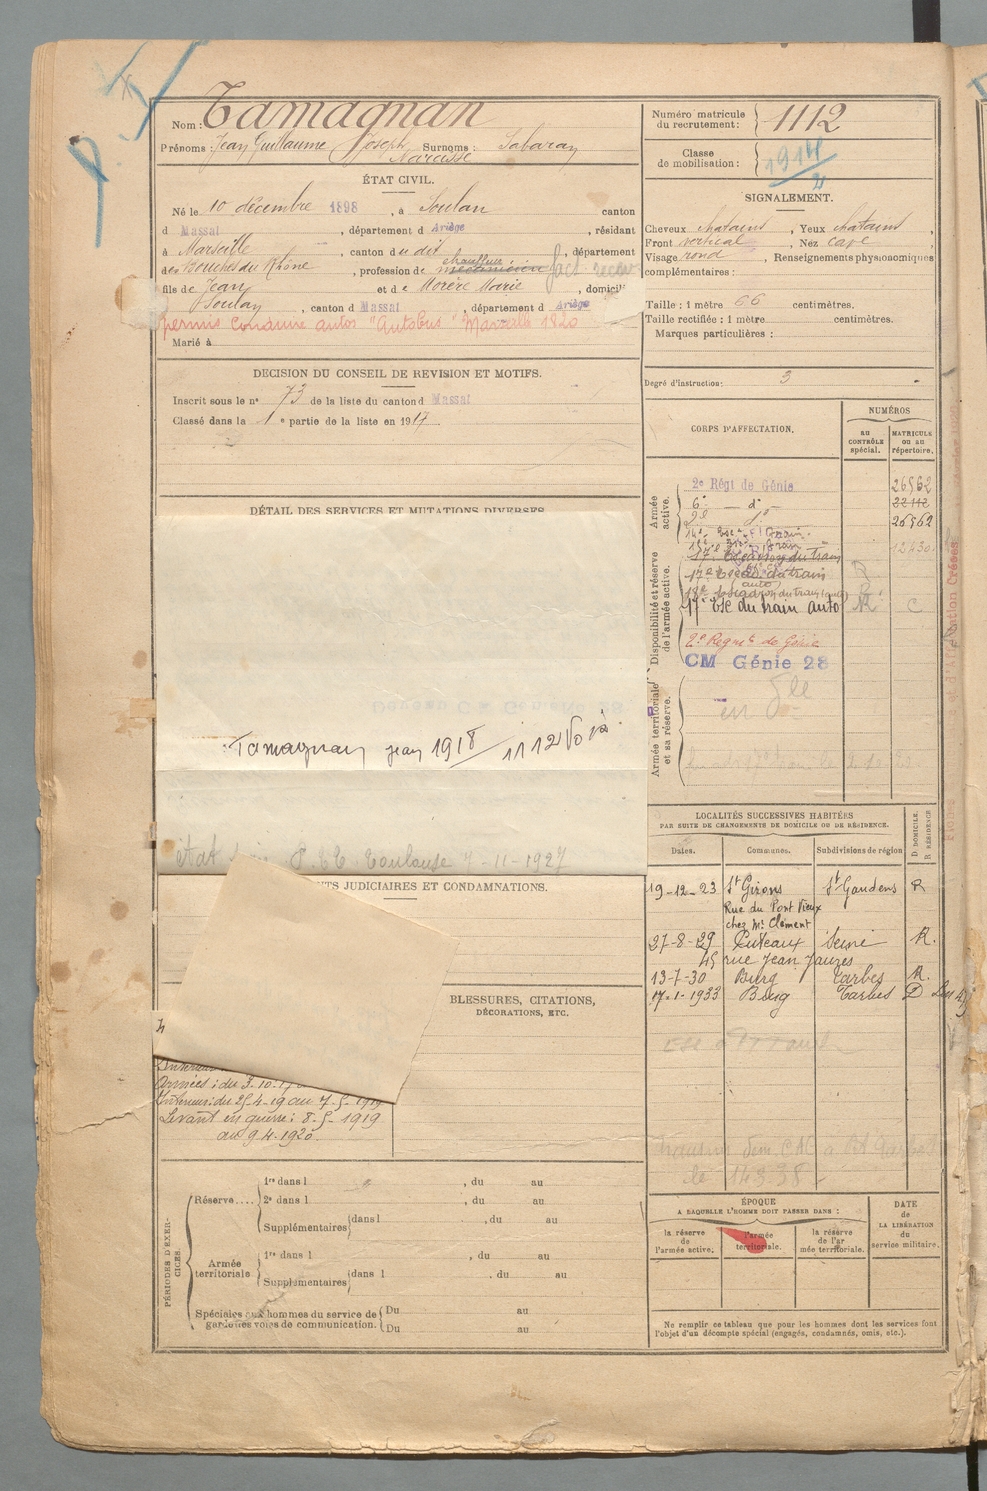 Nom : Tamagnan
Prénoms : Jean Guillaume Joseph Surnoms : Sabaran
Narcisse
ÉTAT CIVIL.
Né le 10 décembre 1898, à Soulan canton
d Massat, département d Ariège, résidant
à Marseille, canton du dit, département
des Bouches du Rhône, profession de mécanicien chauffeur fact. receveur
fils de Jean et de Morère Marie, domicilié
Soulan, canton d Massat, département d Ariège
permis conduire autos "Autobus" Marseille 1920
Marié à
DECISION DU CONSEIL DE REVISION ET MOTIFS.
Inscrit sous le nº 73 de la liste du canton d Massat
Classé dans la 1 e partie de la liste en 1917
DÉTAIL DES SERVICES ET MUTATIONS DIVERSES
Tamagnan Jean 1918 / 1112
P.T.T. Toulouse 7-11-1927
TS JUDICIAIRES ET CONDAMNATIONS.
BLESSURES, CITATIONS,
DÉCORATIONS, ETC.
Armées : du 3.10.17
Intérieur : du 25-4-19 au 7-5-1919
Levant en guerre : 8-5-1919
au 9.4.1920.
PÉRIODES D'EXERCICES.
Réserve.... 1re dans l , du au
2e dans l , du au
Supplémentaires dans l , du au
Armée territoriale 1re dans l , du au
Supplémentaires dans l , du au
Spéciales aux hommes du service de garde des voies de communication. Du au
Du au
Numéro matricule du recrutement : 1112
Classe de mobilisation : 1914
21
SIGNALEMENT.
Cheveux chatains, Yeux chatains,
Front vertical, Nez cave
Visage rond, Renseignements physionomiques
complémentaires :
Taille : 1 mètre 66 centimètres.
Taille rectifiée : 1 mètre centimètres.
Marques particulières :
Degré d'instruction : 3
CORPS D'AFFECTATION,
NUMÉROS
AU CONTRÔLE spécial.
MATRICULE OU AU répertoire.
Armée active.
2e Régt de Génie 26562
6e — do 22112
2e do 26562
Disponibilité et réserve de l'armée active.
12430
17e Escadron du train
17e Escad. du train
(auto)
18e Escadron du train (auto)
17e Esc du train auto R C
2e Regnt de Génie
CM Génie 28
Armée territoriale et sa réserve.
LOCALITÉS SUCCESSIVES HABITÉES
PAR SUITE DE CHANGEMENTS DE DOMICILE OU DE RÉSIDENCE.
Dates. Communes. Subdivisions de région D DOMICILE. R RÉSIDENCE
19-12-23 St Girons St Gaudens R
Rue du Pont Vieux
chez Mr Clément
27-8-29 Puteaux Seine R.
45 rue Jean Jaurès
13-7-30 Burg Tarbes R.
17-1-1933 Burg Tarbes D
ÉPOQUE
A LAQUELLE L'HOMME DOIT PASSER DANS :
la réserve de l'armée active.
l'armée territoriale.
la réserve de l'armée territoriale.
DATE de LA LIBÉRATION du service militaire.
Ne remplir ce tableau que pour les hommes dont les services font
l'objet d'un décompte spécial (engagés, condamnés, omis, etc.).